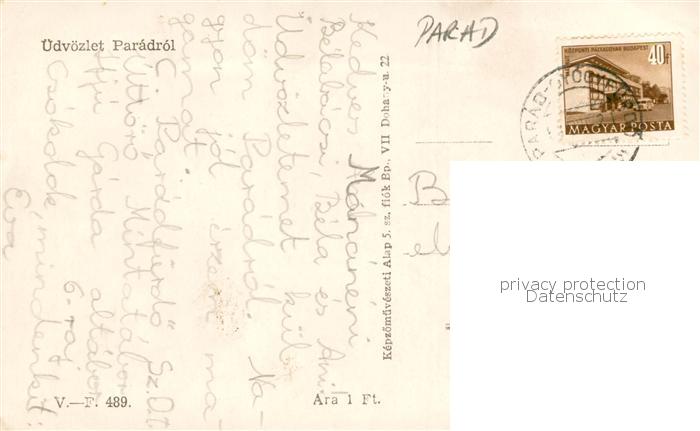 Üdvözlet Parádról
PARAD
KÖZPONTI PÁLYAUDVAR BUDAPEST
40f
MAGYAR POSTA
PARÁD-GYÓGYFÜRDŐ
Kedves Máriánéni
Bélabácsi, Béla és Ani!
Üdvözletemet kül-
döm Parádról. Na-
gyon jól érzem ma-
gamat.
C. Parádfürdő Sz. Ot.
Úttörő Mintatábor
Ifjú Gárda altábor
6. raj
Csókolok mindenkit:
Éva
Képzőművészeti Alap 5. sz. fiók Bp., VII Dohány-u. 22
B
V.—F. 489.
Ára 1 Ft.
privacy protection
Datenschutz